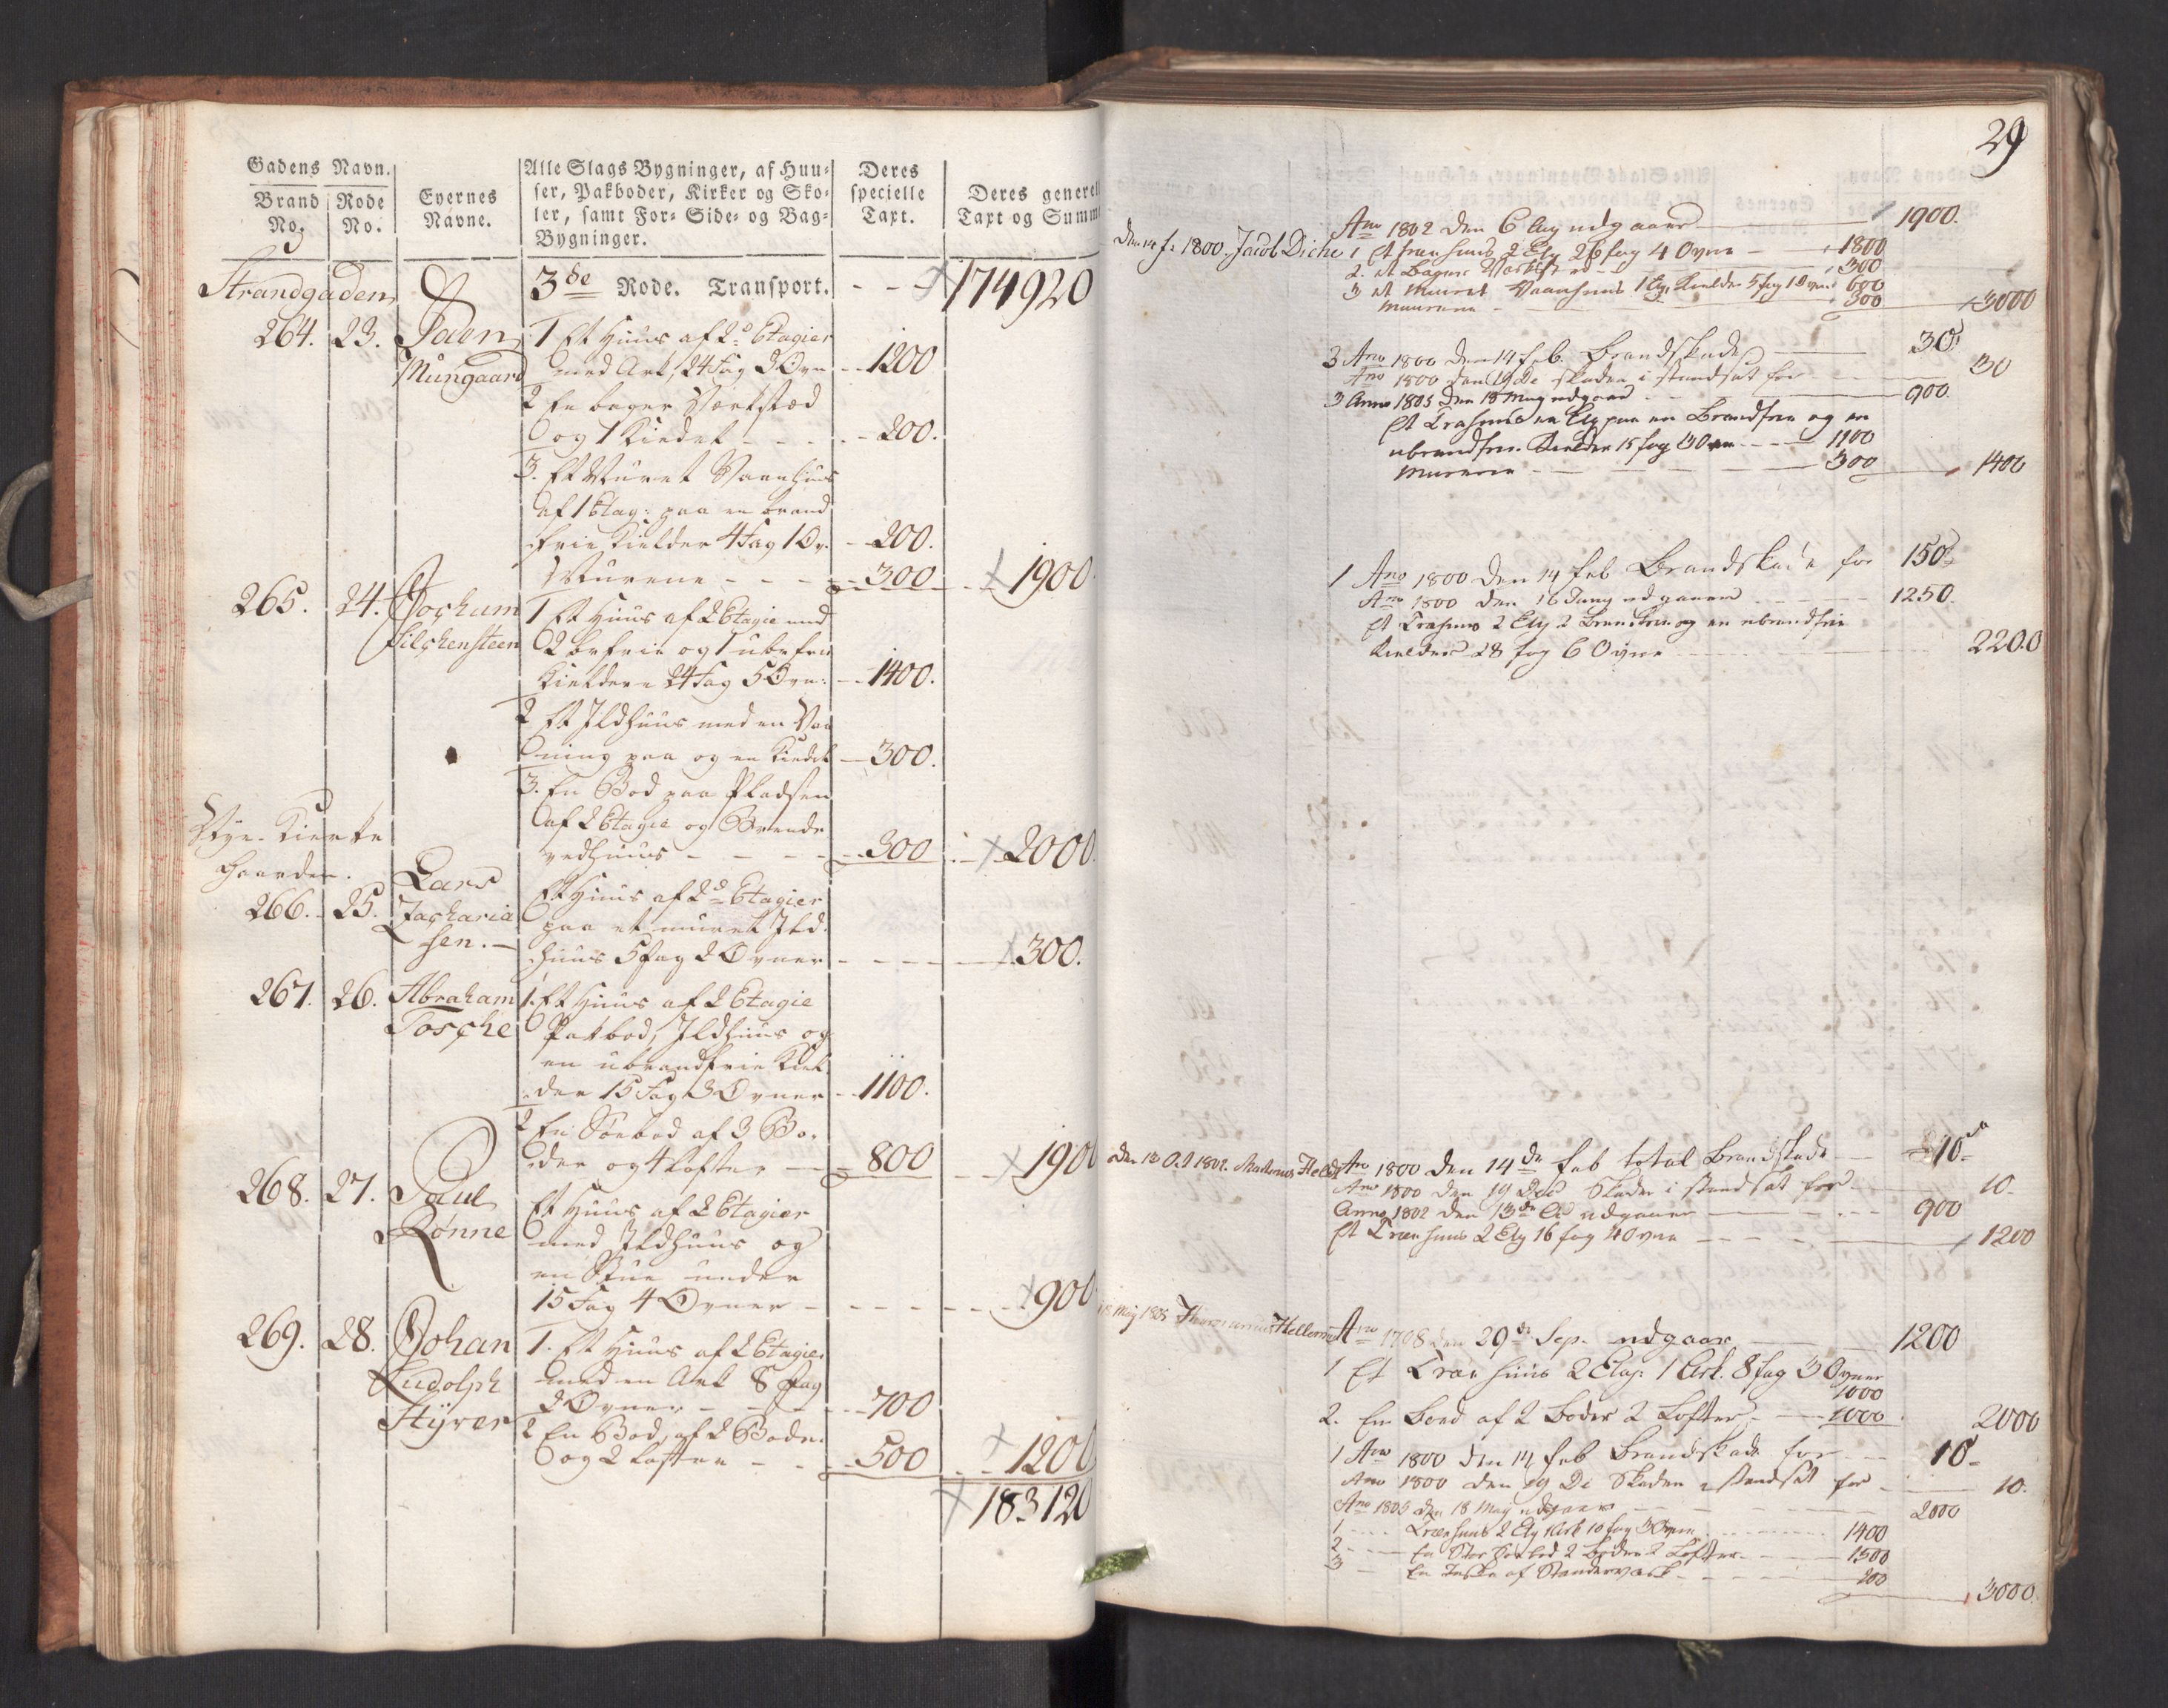 Gadens Navn.
Brand No.
Rode No.
Eyernes Navne.
Alle Slags Bygninger, af Huu-
ser, Pakboder, Kirker og Sko-
ler, samt For- Side- og Bag-
Bygninger.
Deres specielle Taxt.
Deres generel
Taxt og Summ
Strandgaden
3de Rode. Transport. - - - 174920
264. 23. Daen 1 Et Huus af 2de Etagier
Mungaard med Ark, 24 Fag 2 Ovn - - 1200
2 En bager Værksted
og 1 Kielder - - - 200.
3. Et Muret Vaanhuus
af 1 Etag: paa en brand
frie Kielder 4 Fag 1 Ov. - 200.
Murene - - - 300 - 1900
265. 24. Jochum 1 Et Huus af 2 Etagie med
Silchensteen 2 befrie og 1 ubefrie
Kieldere 24 Fag 5 Ovn: - 1400.
2 Et Ildhuus med en Vaa
ning paa og en Kielder - 300.
3. En Bod paa Pladsen
af 2 Etagie og Brende
vedhuus - - - 300 - 2000.
Nye Kierke
Gaarden.
266. 25. Lars Zacharia
sen. -
Et Huus af 2de Etagier
paa et muret Ild-
huus 5 Fag 2 Ovner - - - 300.
267. 26. Abraham 1. Et Huus af 2 Etagie
Tosche Pakbod, Ildhuus og
en ubrandfrie Kiel-
der 15 Fag 3 Ovner - 1100.
2 En Søebod af 3 Bo-
der og 4 Lofter - 800 - 1900
268. 27. Paul Et Huus af 2 Etagier
Rønne med Ildhuus og
en Stue under
15 Fag 4 Ovner - - - 900
269. 28. Johan 1. Et Huus af 2 Etagier
Ludolph med en Ark 8 Fag
Styver 2 Ovner - - - 700
2 En Bod, af 2 Boder
og 2 Lofter - - 500 - 1200
183120
29
Ano 1802 den 6 Aug udgaaer - 1900.
Den 14 f. 1800. Jacob Diche 1 Et træhuus 2 Etg 26 fag 4 Ovne - 1800
2. et Bager Værksted - 300
3 et Muret Vaanhuus 1 Etg. Kielder 5 fag 1 Ovn 600
Muurene - 300 3000
3 Ano 1800 den 14 feb. Brandskade - 30
Ano 1800 den 19 De skaden i standsat for - 30
3 Anno 1805 den 18 May udgaaer - 900.
Et Træhuus en Etg paa en Brandfrie og en
ubrandfrie Kielder 15 fag 3 Ovne - 1100
Murene - 300 1400
1 Ano 1800 den 14 feb Brandskade for 150
Ano 1800 den 16 Juny udgaaer - 1250.
Et Træhuus 2 Etg 2 Brandfrie og en ubrandfrie
Kielder 28 fag 6 Ovne - 2200
den 13 Oct 1802. Heldt Ano 1800 den 14de feb total Brandskade - 10
Ano 1800 den 19 Dec Skaden i standsat for - 10-
Anno 1802 den 13de udgaaer - 900
Et Træehuus 2 Etg 16 fag 4 Ovne - 1200
18 May 1805 Hellerm Ano 1798 den 29de Sep. udgaaer - 1200
1 Et Træe huus 2 Etag: 1 Ark. 8 fag 3 Ovner
1000
2. En Boed af 2 Boder 2 Lofter - 1000 2000
1 Ano 1800 den 14 feb Brandskade for - 10-
Ano 1800 den 19 De Skaden i standsat for - 10.
Ano 1805 den 18 May udgaaer - 2000
1 - Træehuus 2 Etg 1 Ark 10 fag 3 Ovne - 1400
2 - En Stor Søebod 2 Boder 2 Lofter - 1500
3 - En af Standerværk - 200
3000.